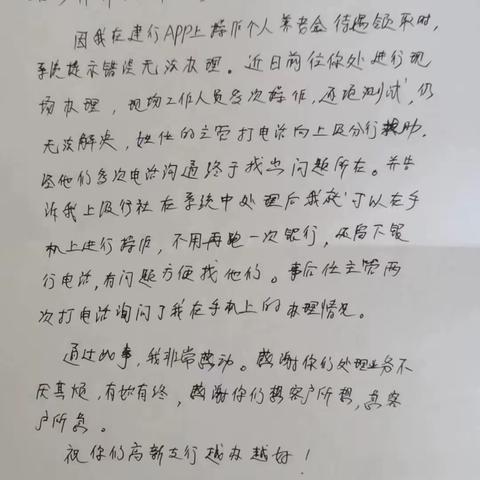 因我在建行APP上操作个人养老金待遇领取时,
系统提示错误无法办理。近日前往你处进行现
场办理,现场工作人员多次操作,逐项测试,仍
无法解决,姓任的主管打电话向上级分行求助,
经他们多次电话沟通终于找出问题所在。并告
诉我上级行社在系统中处理后我就可以在手
机上进行操作,不用再跑一次银行,还留下银
行电话,有问题方便找他们。事后任主管两
次打电话询问了我在手机上的办理情况。
通过此事,我非常感动。感谢你们处理业务不
厌其烦,有始有终,感谢你们想客户所想,急客
户所急。
祝你们高新支行越办越好!